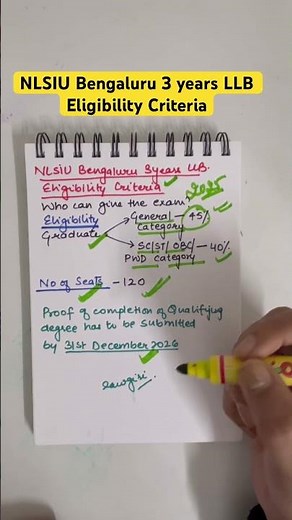 NLSIU Bengaluru 3 years LLB
Eligibility Criteria
NLSIU Bengaluru 3years LLB.
Eligibility Criteria
2025
Who can give the exam?
Eligibility General - 45%
Category
Graduate
SC/ST/OBC/ - 40%
PWD category
No of Seats - 120
Proof of completion of Qualifying
degree has to be submitted
by 31st December 2026